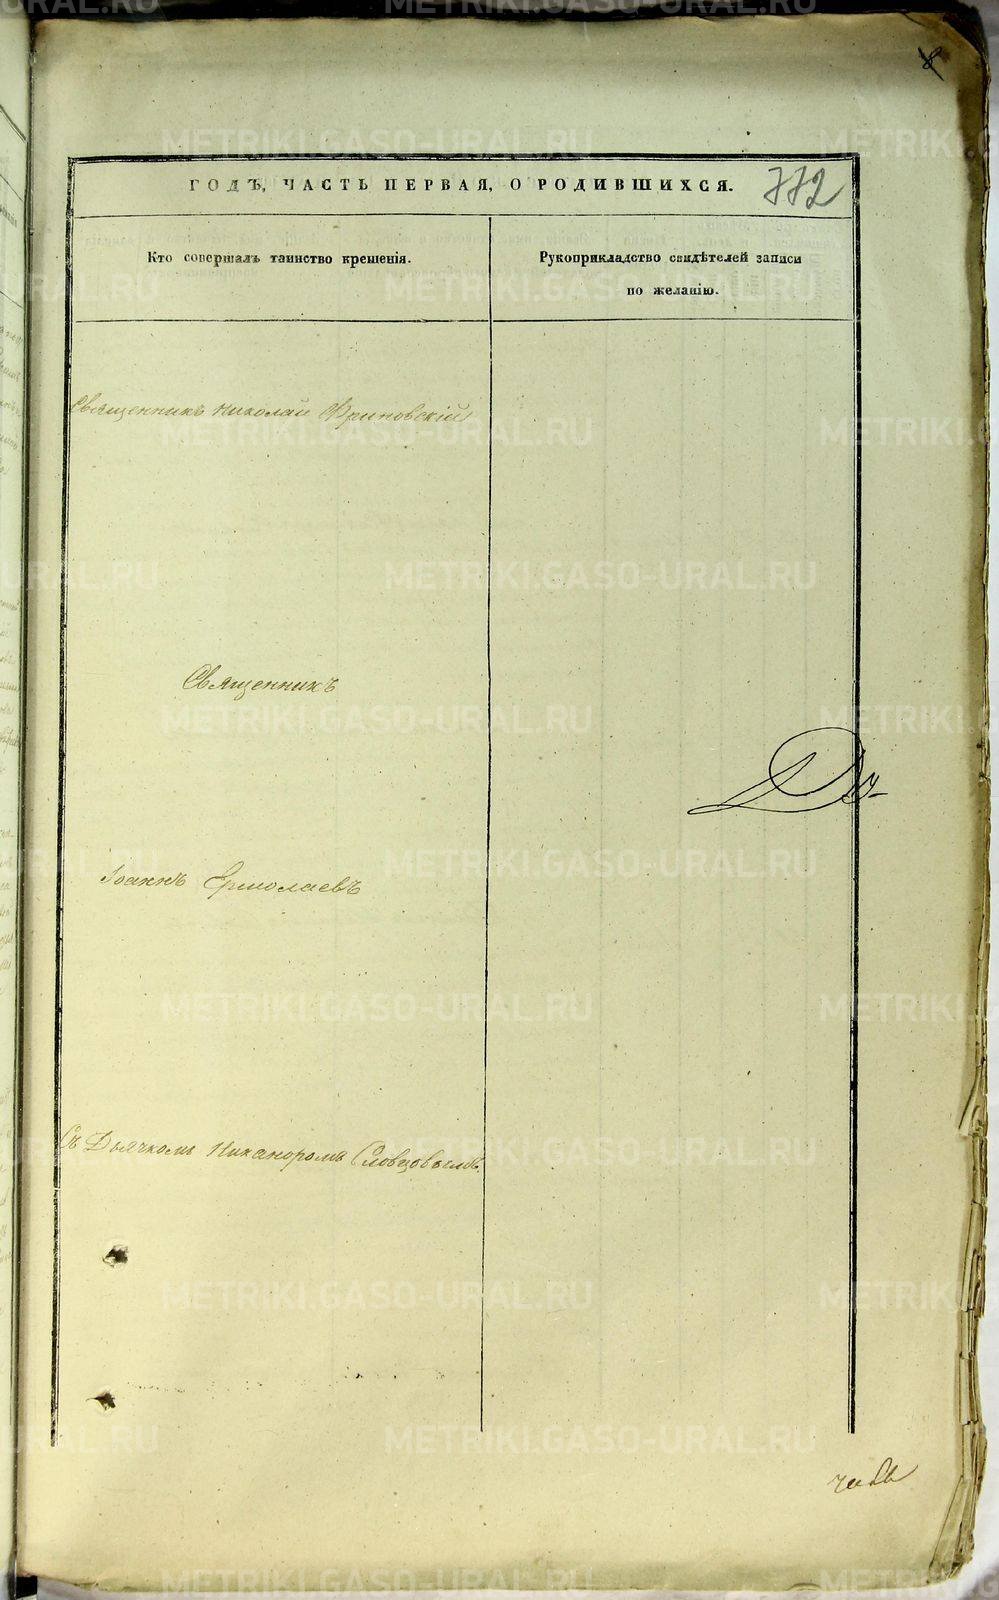 8
ГОДЪ, ЧАСТЬ ПЕРВАЯ, О РОДИВШИХСЯ. 772
Кто совершалъ таинство крещенія.
Рукоприкладство свидѣтелей записи
по желанію.
Священникъ Николай Фриновскій
Священникъ
До-
Іоаннъ Ермолаевъ
Съ Дьячкомъ Никаноромъ Словцовымъ.
METRIKI.GASO-URAL.RU